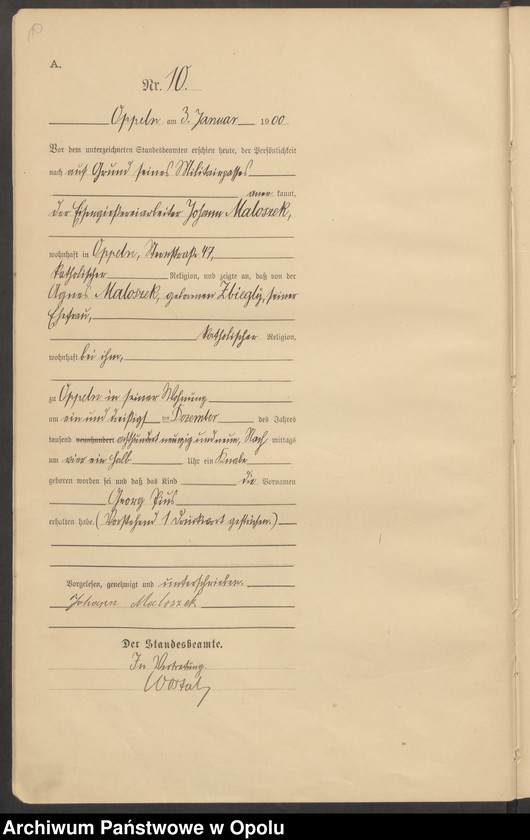 A.
Nr. 10.
Oppeln am 3. Januar 1900
Vor dem unterzeichneten Standesbeamten erschien heute, der Persönlichkeit
nach auf Grund seines Militairpasses
aner kannt,
der Eisengießereiarbeiter Johann Maloszek,
wohnhaft in Oppeln, 47,
katholischer Religion, und zeigte an, daß von der
Agnes Maloszek, geborenen Zbiegly, seiner
Ehefrau,
katholischer Religion,
wohnhaft bei ihm,
zu Oppeln in seiner Wohnung
am ein und dreißigsten Dezember des Jahres
tausend neunhundert achthundert neunzig und neun, Nach mittags
um vier ein halb Uhr ein Knabe
geboren worden sei und daß das Kind die Vornamen
Georg Pius
erhalten habe. (Vorstehend 1 Druckwort gestrichen.)
Vorgelesen, genehmigt und unterschrieben.
Johann Maloszek
Der Standesbeamte.
In Vertretung.
Archiwum Państwowe w Opolu